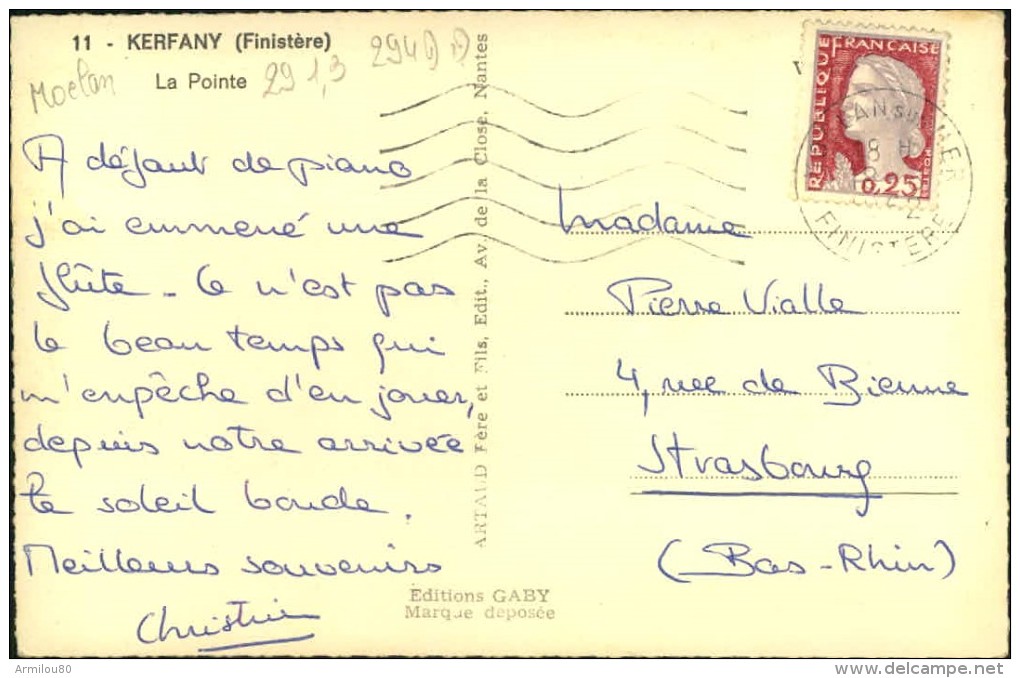 11 - KERFANY (Finistère)
La Pointe
Moelan
29 1,3
294
A défaut de piano
j'ai emmené une
flûte - Ce n'est pas
le beau temps qui
m'enpêche d'en jouer,
depuis notre arrivée
le soleil boude.
Meilleurs souvenirs
Christine
ARTAUD Fère et Fils, Edit., Av. de la Close, Nantes
Editions GABY
Marque deposée
REPUBLIQUE FRANÇAISE
0,25
LAN S MER
18 H
FINISTERE
Madame
Pierre Vialle
4, rue de Bienne
Strasbourg
(Bas-Rhin)
Armilou80
delcampe.net